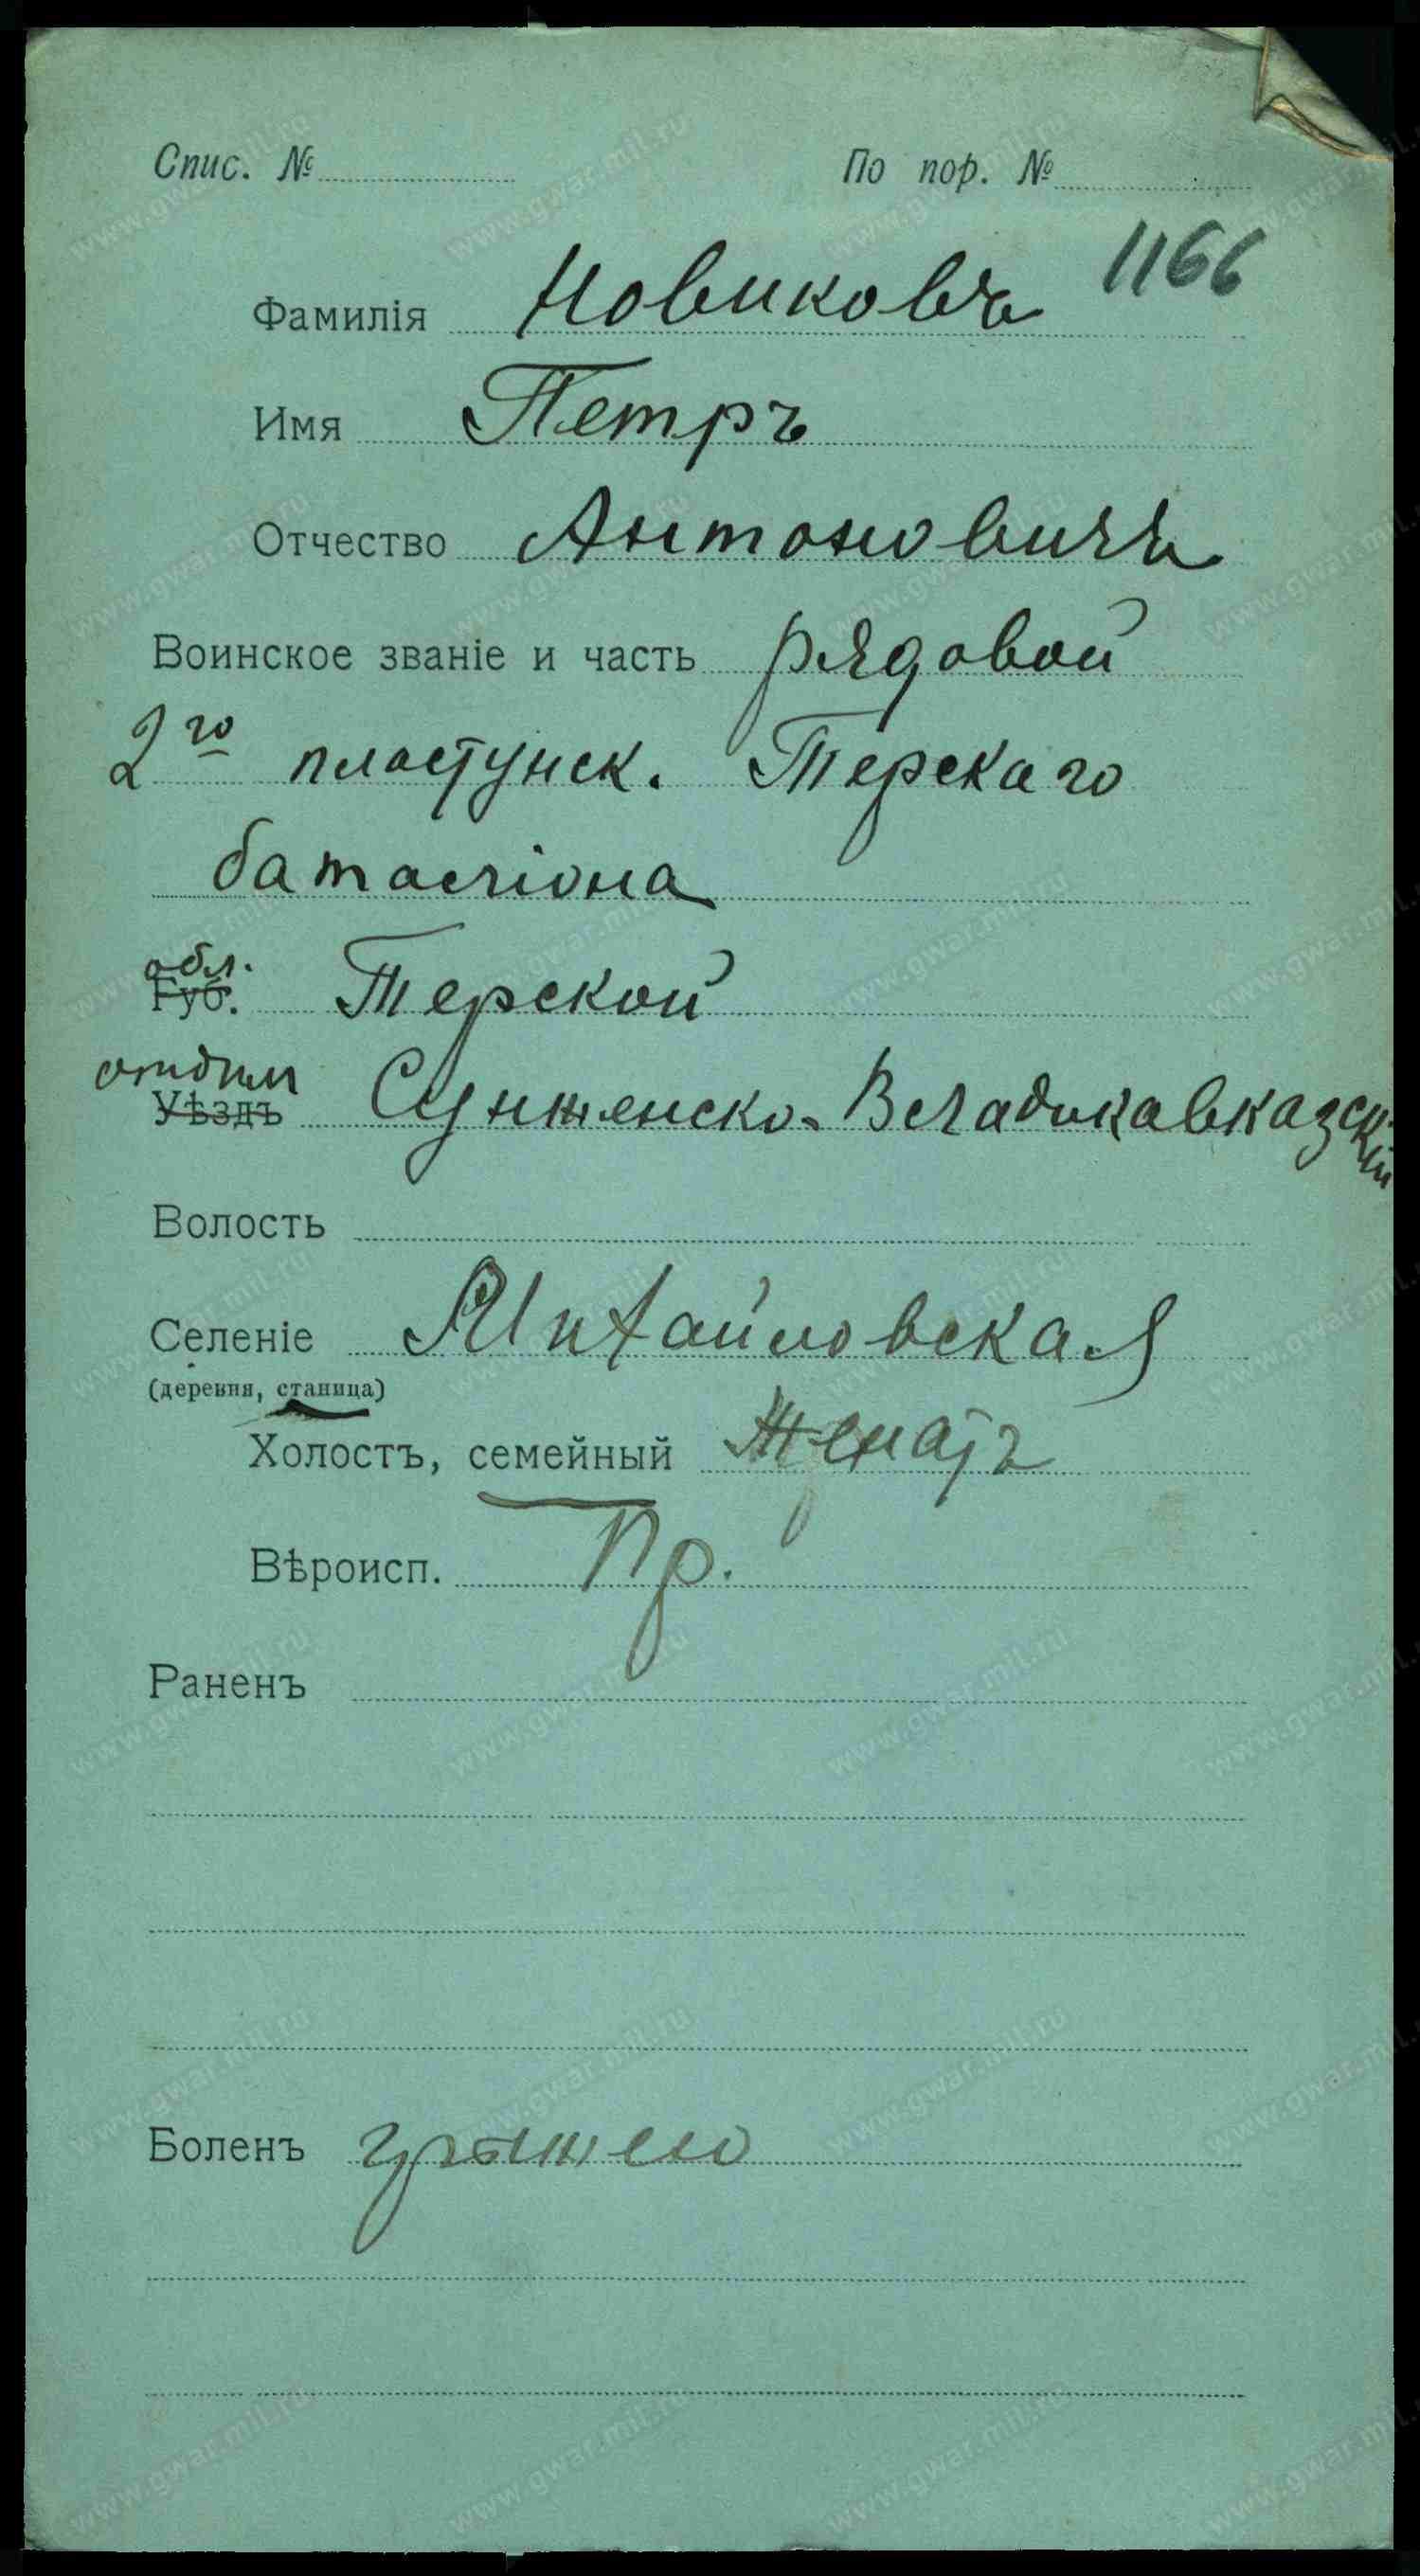 Спис. № По пор. №
1166
Фамилія Новиковъ
Имя Петръ
Отчество Антоновичъ
Воинское званіе и часть рядовой
2го пластунск. Терскаго
баталіона
обл.
Губ. Терской
отдѣлъ
Уѣздъ Сунженско-Владикавказскій
Волость
Селеніе Михайловская
(деревня, станица)
Холостъ, семейный Женатъ
Вѣроисп. Пр.
Раненъ
Боленъ грыжею
www.gwar.mil.ru